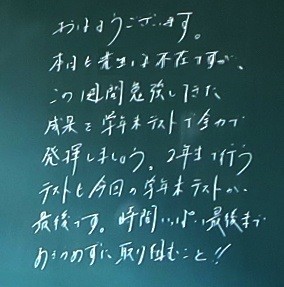 おはようございます。
本日も先生は不在ですが、
この1週間勉強してきた
成果を学年末テストで全力で
発揮しましょう。2年生で行う
テストも今回の学年末テストが、
最後です。時間いっぱい最後まで
あきらめずに取り組むこと!!